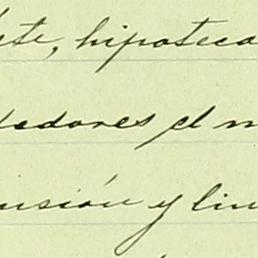 hipoteca
dedores el
nsión y lin